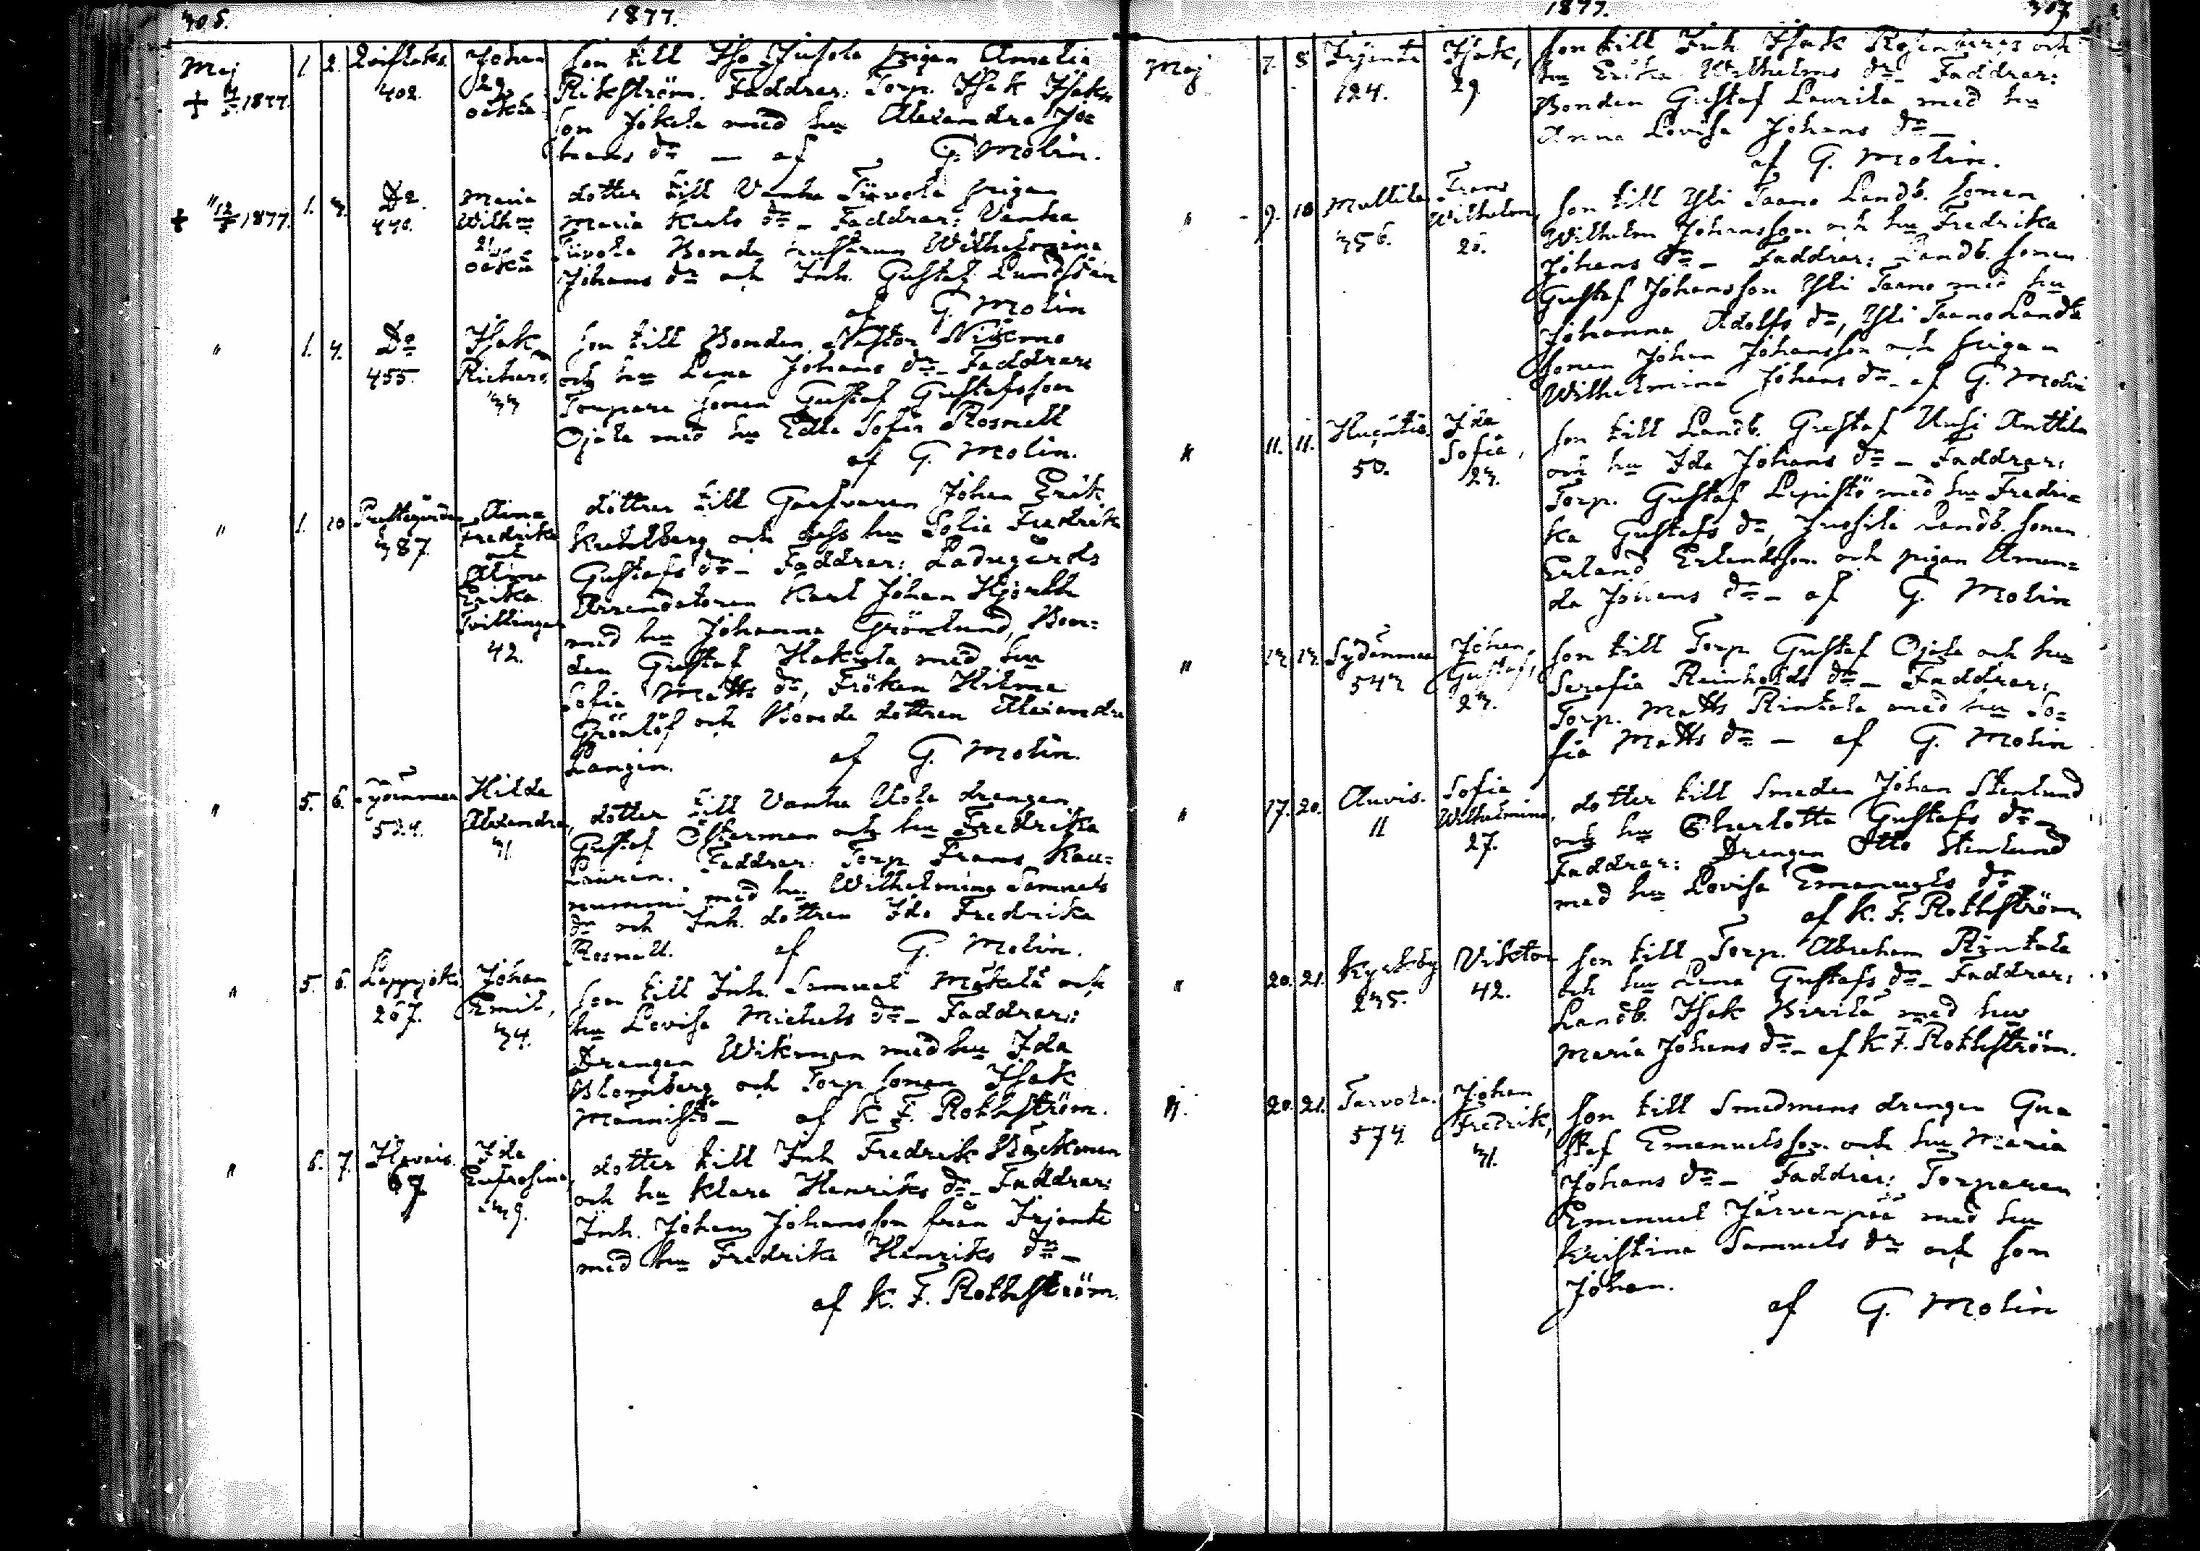 1877.
Maj 1. 2. Johan son till Iso Jusola pigan Amalia
402. 29 Rikström. Faddrar: Torp. Isak Isaks
+ 1877. oäkta son Jokela med hu Alexandra Jo
hans dr — af G. Molin.
+ 12/5 1877. 1. 3. Do Maria dotter till Vanha Tüvola pigan
440. Wilhma Maria Karls dr — Faddrar: Vanha
Tüvola Bonde hustrun Wilhelmina
oäkta Johans dr och Inh. Gustaf Lundsten
af G. Molin
" 1. 4. Do Isak son till Bonden Nestor
455. Richard och hu Lena Johans dr — Faddrar:
33 Torpare sonen Gustaf Gustafsson
Ojala med hu Edla Sofia Rosnell
af G. Molin.
" 1. 10 Aina döttrar till Garfvaren Johan Erik
387. Fredrika och dess hu Sofia Fredrika
och Gustafs dr — Faddrar: Ladugårds
Alina
Erika Arrendatoren Karl Johan Hjorth
Tvillingar med hu Johanna Grönlund, Bon=
42. den Gustaf Hakula med hu
Sofia Matts dr, Fröken Hilma
Grönlöf och Bonde dottren Alexandra
Langin. af G. Molin.
" 5. 6. Hilda dotter till Vanha Uola drengen
524. Alexandra, Gustaf Österman och hu Fredrika
31. Lauren. Faddrar: Torp. Frans Kau=
nummi med hu Wilhelmina Samuels
dr och Inh. dottren Ida Fredrika
Rosnell. af G. Molin.
" 5. 6. Lappijoki Johan son till Inh. Samuel Mäkelä och
267. Emil, hu Lovisa Michels dr — Faddrar:
34. Drengen Wikman med hu Ida
Blomberg och Torp. sonen Isak
Mannistö — af K. F. Rothström.
" 6. 7. Ida dotter till Inh Fredrik Bäckman
67 Eufrosina, och hu Klara Henriks dr — Faddrar:
39. Inh. Johan Johansson från Irjante
med hu Fredrika Henriks dr —
af K. F. Rothström.
1877. 307
Maj 7. 8 Irjante Isak, son till Inh Isak Rosenberg och
124. 29 hu Erika Wilhelms dr — Faddrar:
Bonden Gustaf Laurila med hu
Anna Lovisa Johans dr —
af G. Molin.
" 9. 10 Mullila Frans son till Yli Taano Landb. sonen
356. Wilhelm, Wilhelm Johansson och hu Fredrika
Johans dr — Faddrar: Landb. sonen
Gustaf Johansson Yli Taano med hu
Johanna Adolfs dr, Yli Taano Landb
sonen Johan Johansson och pigan
Wilhelmina Johans dr — af G. Molin
" 11. 11. Ida son till Landb. Gustaf Uusi Anttila
50. Sofia, och hu Ida Johans dr — Faddrar:
23. Torp. Gustaf Lepistö med hu Fredri=
ka Gustafs dr, Jussila Landb. sonen
Erland Erlandsson och pigan Aman=
da Johans dr — af G. Molin
" 13. 13. Sydänmaa Johan, son till Torp Gustaf Ojala och hu
543 Gustaf, Serafia Reinholds dr — Faddrar:
23. Torp. Matts Rintala med hu So=
fia Matts dr — af G. Molin
" 17. 20. Auvis. Sofia dotter till Smeden Johan Stenlund
11 Wilhelmina, och hu Charlotta Gustafs dr —
27. Faddrar: Drengen Otto Stenlund
med hu Lovisa Emanuels dr
af K. F. Rothström
" 20. 21. Kyrkby Viktor son till Torp. Abraham Rintala
235. 42. och hu Lena Gustafs dr — Faddrar:
Landb. Isak Pirilä med hu
Maria Johans dr — af K F. Rothström.
" 20. 21. Tarvola. Johan son till Smedmans drengen Gu=
574 Fredrik, staf Emanuelsson och hu Maria
31. Johans dr — Faddrar: Torparen
Emanuel Järvenpää med hu
Kristina Samuels dr och son
Johan.
af G. Molin